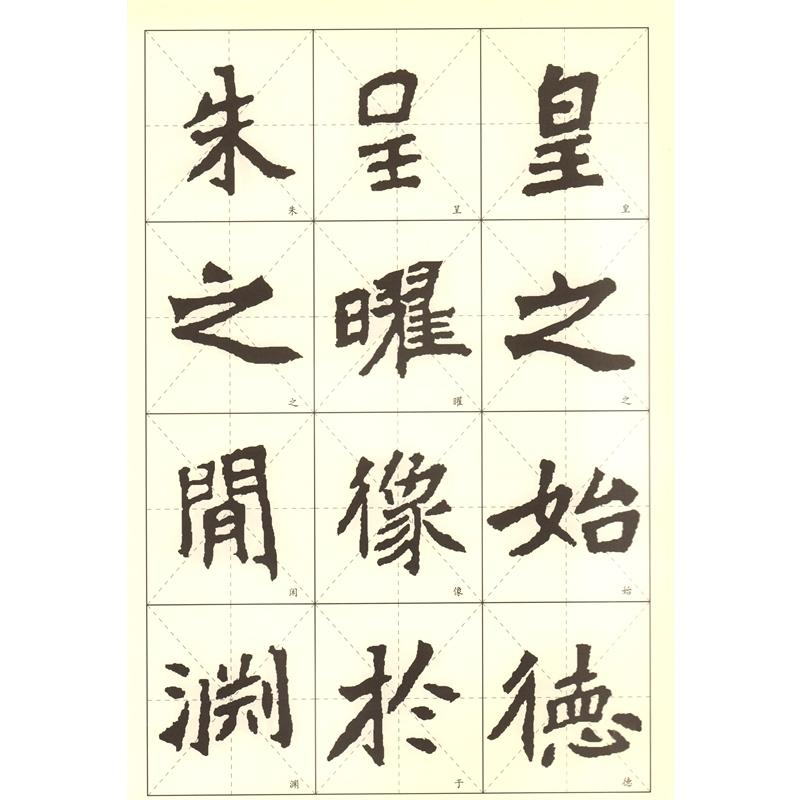 皇之始德
皇之始德
呈曜像於
呈曜像于
朱之閒淵
朱之闲渊